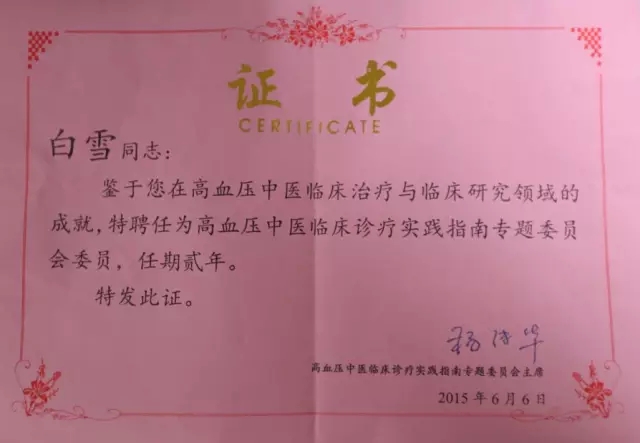 证 书
CERTIFICATE
白雪同志：
鉴于您在高血压中医临床治疗与临床研究领域的
成就，特聘任为高血压中医临床诊疗实践指南专题委员
会委员，任期贰年。
特发此证。
高血压中医临床诊疗实践指南专题委员会主席
2015年6月6日